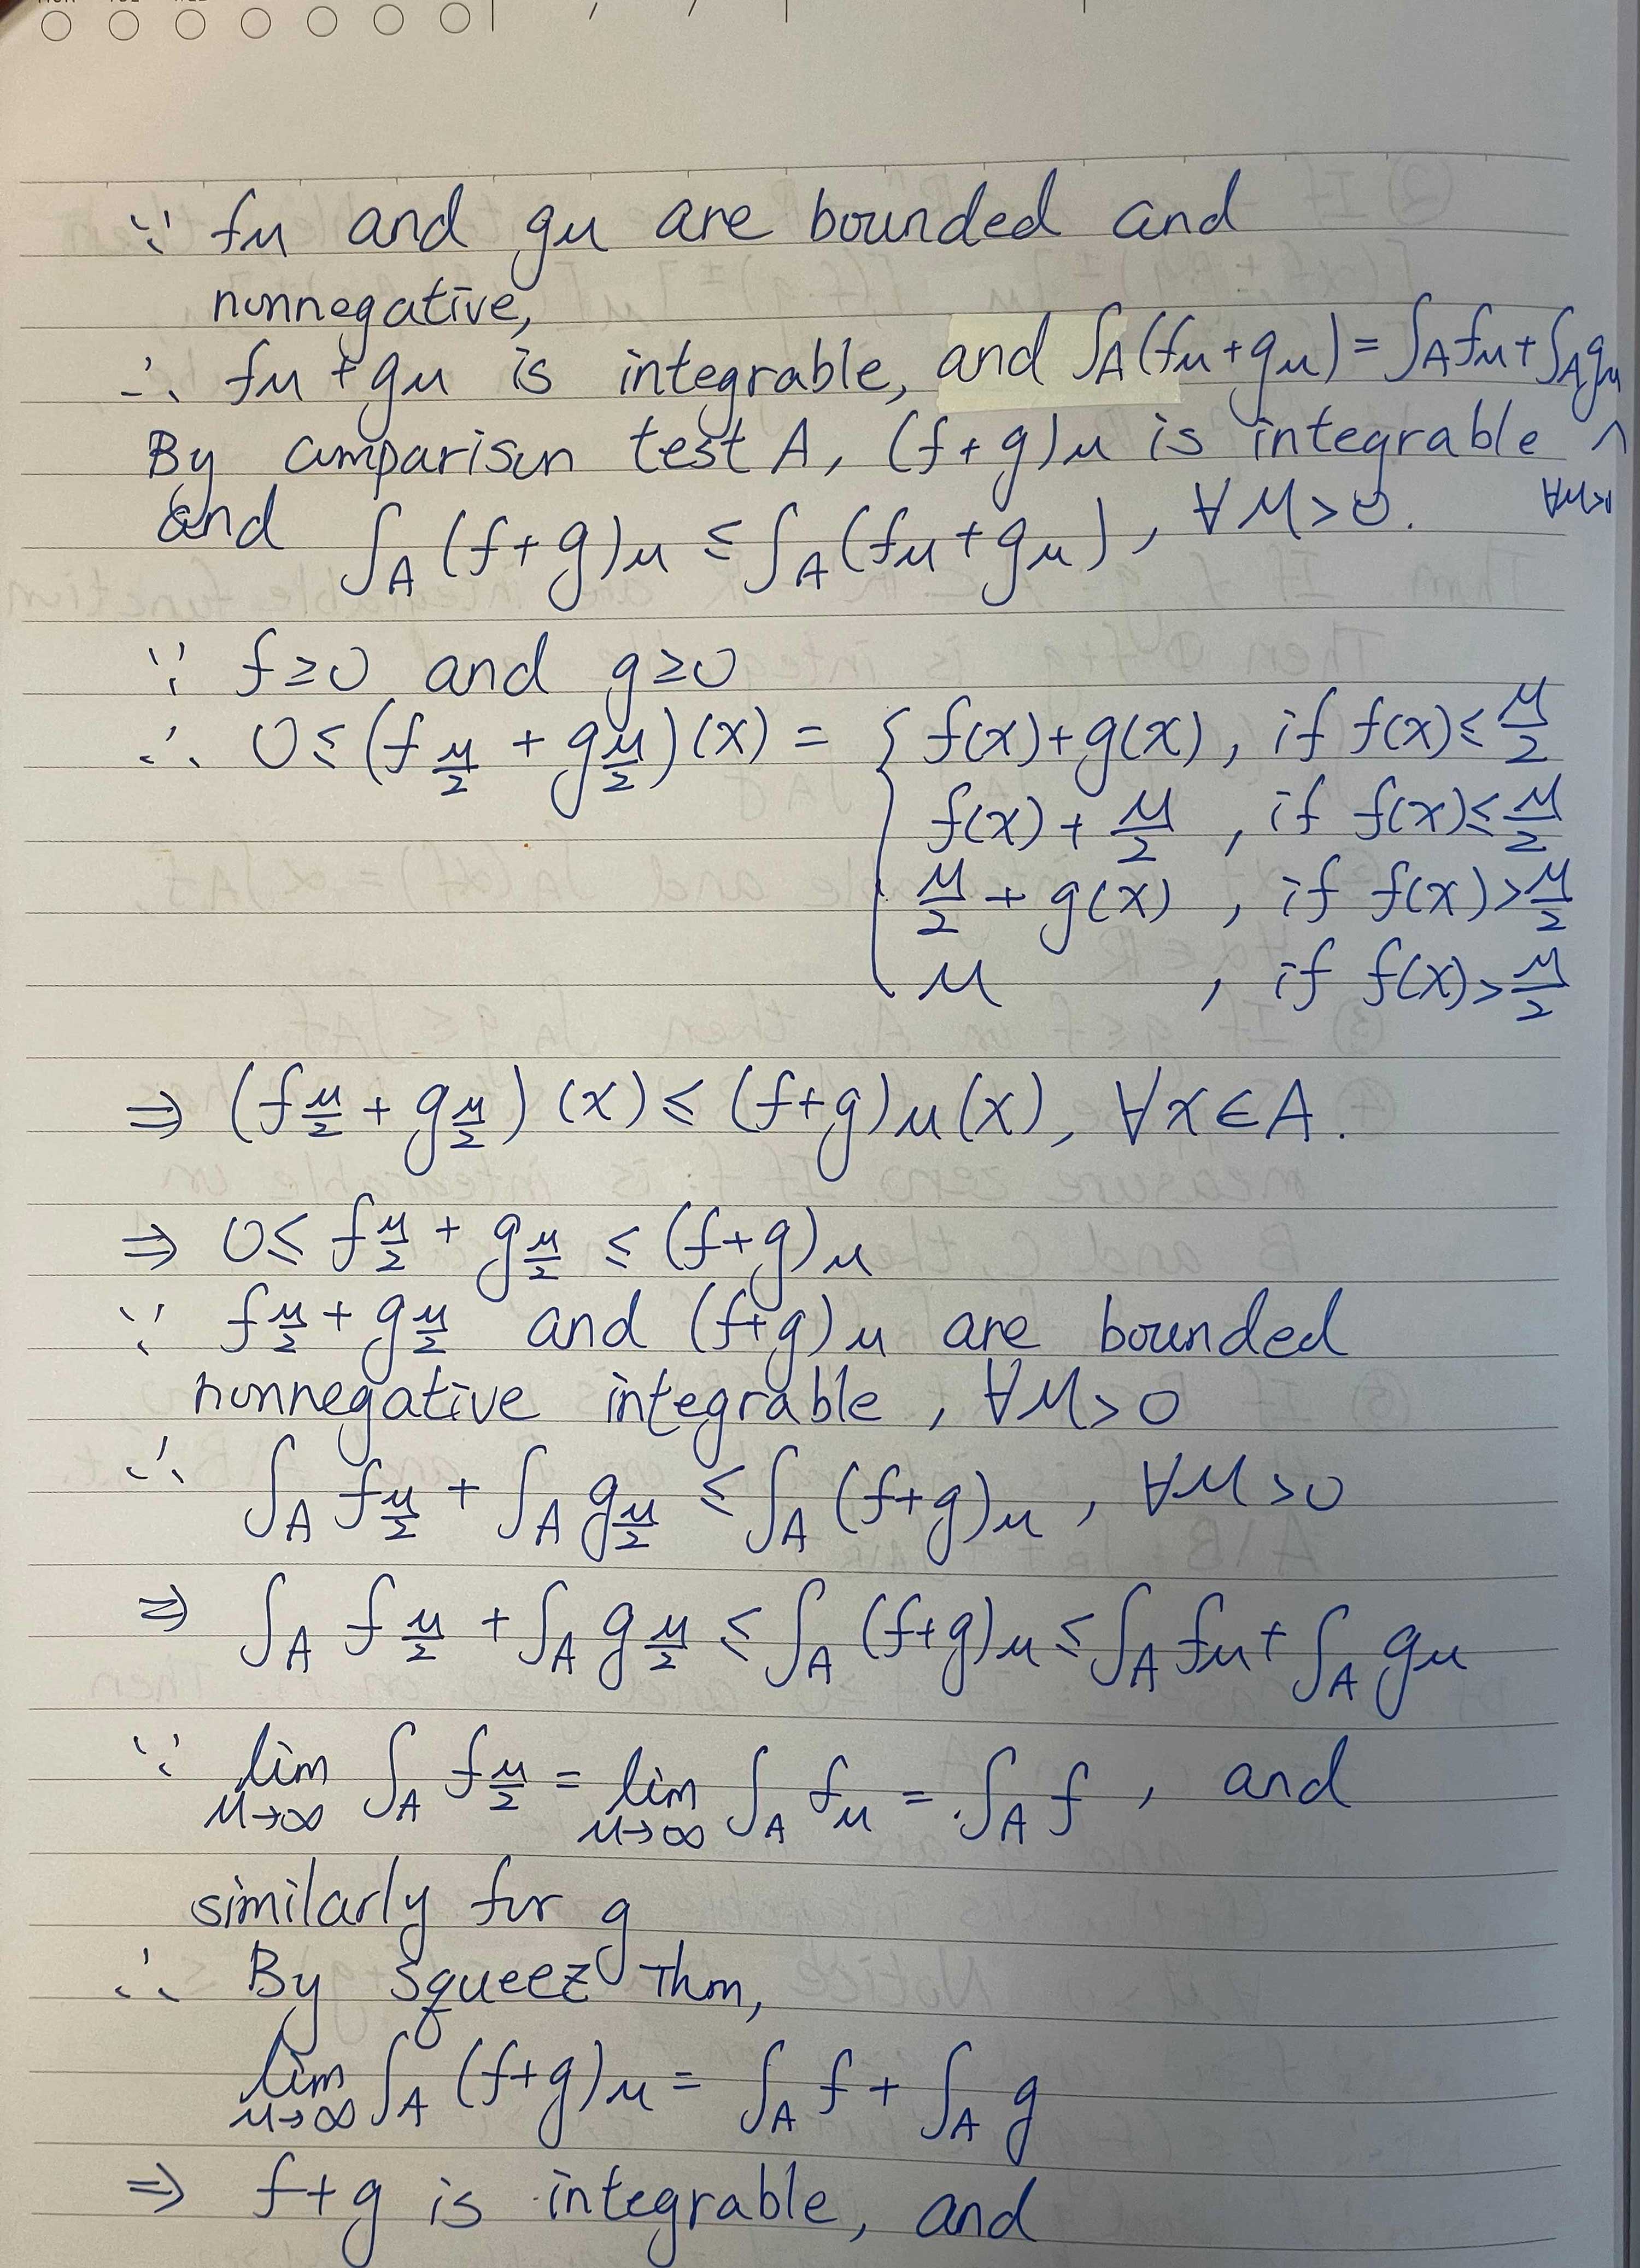 ∵ f_M and g_M are bounded and
nonnegative,
∴ f_M + g_M is integrable, and ∫_A (f_M + g_M) = ∫_A f_M + ∫_A g_M
By comparison test A, (f+g)_M is integrable ^
and ∫_A (f+g)_M ≤ ∫_A (f_M + g_M), ∀M>0. ∀M>0
∵ f≥0 and g≥0
∴ 0 ≤ (f_{M/2} + g_{M/2})(x) = { f(x)+g(x), if f(x) ≤ M/2
f(x) + M/2, if f(x) ≤ M/2
M/2 + g(x), if f(x) > M/2
M, if f(x) > M/2
⇒ (f_{M/2} + g_{M/2})(x) ≤ (f+g)_M(x), ∀x∈A.
⇒ 0 ≤ f_{M/2} + g_{M/2} ≤ (f+g)_M
∵ f_{M/2} + g_{M/2} and (f+g)_M are bounded
nonnegative integrable, ∀M>0
∴ ∫_A f_{M/2} + ∫_A g_{M/2} ≤ ∫_A (f+g)_M, ∀M>0
⇒ ∫_A f_{M/2} + ∫_A g_{M/2} ≤ ∫_A (f+g)_M ≤ ∫_A f_M + ∫_A g_M
∵ lim_{M→∞} ∫_A f_{M/2} = lim_{M→∞} ∫_A f_M = ∫_A f, and
similarly for g
∴ By Squeez Thm,
lim_{M→∞} ∫_A (f+g)_M = ∫_A f + ∫_A g
⇒ f+g is integrable, and